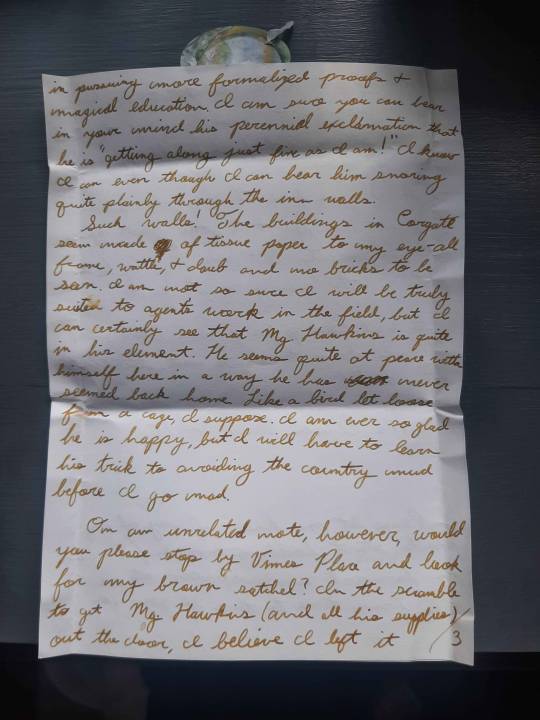 in pursuing more formalized proofs &
magical education. I am sure you can hear
in your mind his perennial exclamation that
he is "getting along just fine as I am!" I know
I can even though I can hear him snoring
quite plainly through the inn walls.
Such walls! The buildings in Corgatt
seem made of tissue paper to my eye-all
frame, wattle, & daub and no bricks to be
seen. I am not so sure I will be truly
suited to agents work in the field, but I
can certainly see that Mg Hawkins is quite
in his element. He seems quite at peace with
himself here in a way he has never
seemed back home. Like a bird let loose
from a cage, I suppose. I am ever so glad
he is happy, but I will have to learn
his trick to avoiding the country mud
before I go mad.
On an unrelated note, however, would
you please stop by Vimes Place and look
for my brown satchel? In the scramble
to get Mg Hawkins (and all his supplies)
out the door, I believe I left it
/3